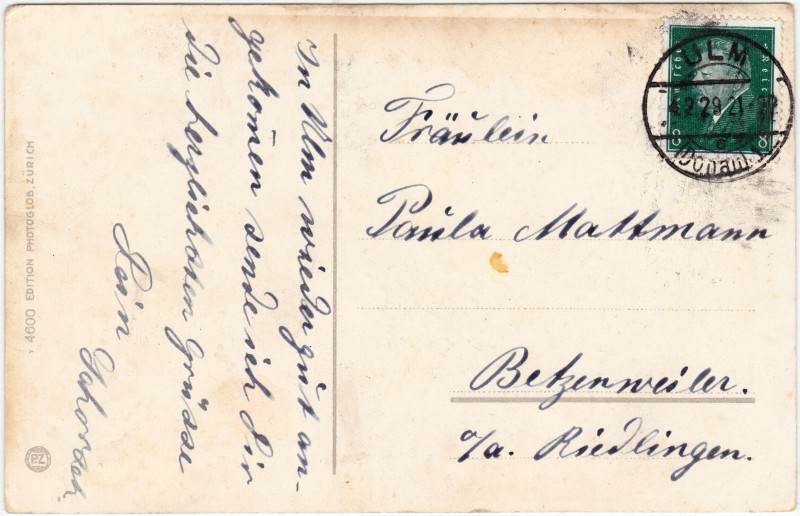 In Ulm wieder gut an-
gekomen sende ich Dir
die herzlichsten Grüsse
Dein
Fräulein
Paula Mattmann
Betzenweiler.
o/a. Riedlingen.
ULM
4.2.29.21-22
(Donau)
8
8
4600 EDITION PHOTOGLOB, ZÜRICH
P.Z